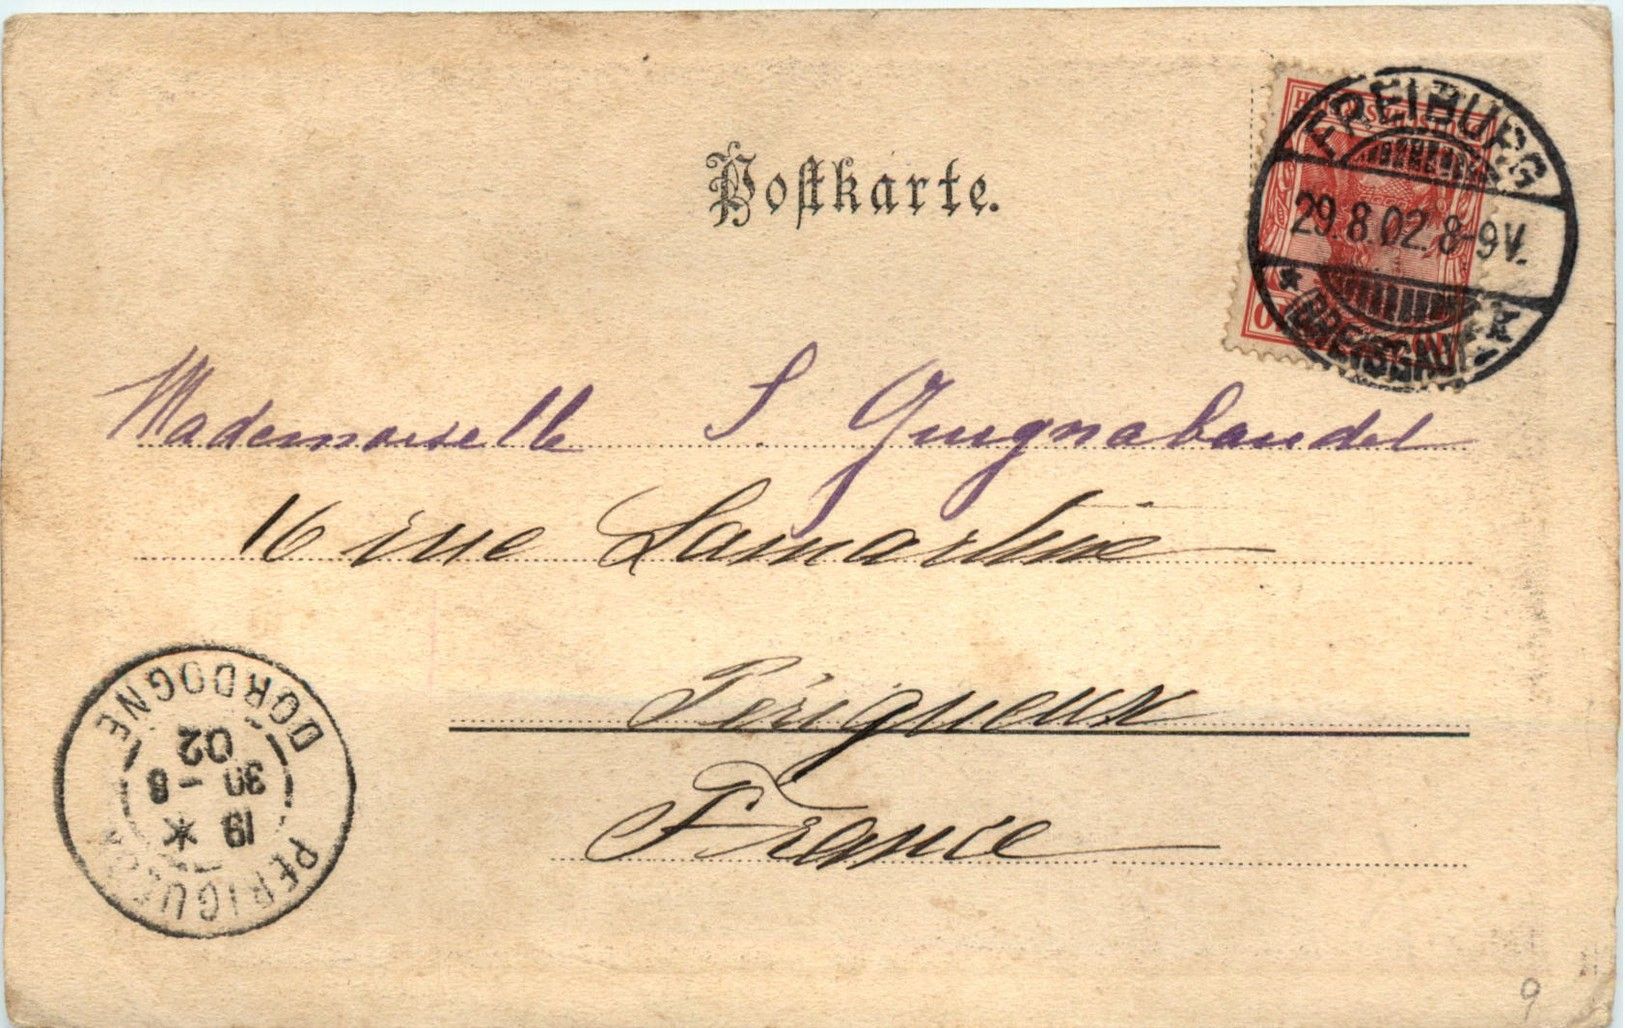 Postkarte.
FREIBURG
29.8.02. 8-9V.
* BREISGAU *
10
Mademoiselle S. Guignabaudet
16 rue Lamartine
Périgueux
France
PERIGUEUX
19 *
30 - 8
02
DORDOGNE
9